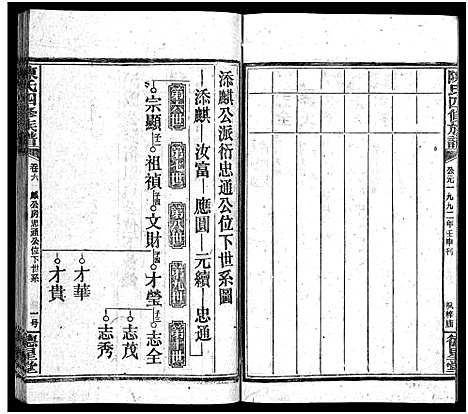 陳氏四修族譜
公元一九九二年壬申刊
德星堂
添麒公派衍忠通公位下世系圖
添麒—汝富—應圓—元續—忠通
第十六世
第十七世
第十八世
第十九世
宗顯 子一 祖禎 子一 文財 子三 才瑩 子三 志全
志茂
志秀
才華
才貴
陳氏四修族譜
卷六 麒公房忠通公位下世系
一号
德星堂